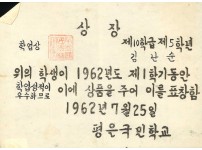 상장
학업상
제10학급 제5학년
김난순
위의 학생이 1962년도 제1학기동안
학업성적이
우수하므로
이에 상품을 주어 이를 표창함
1962년 7월 25일
평은국민학교